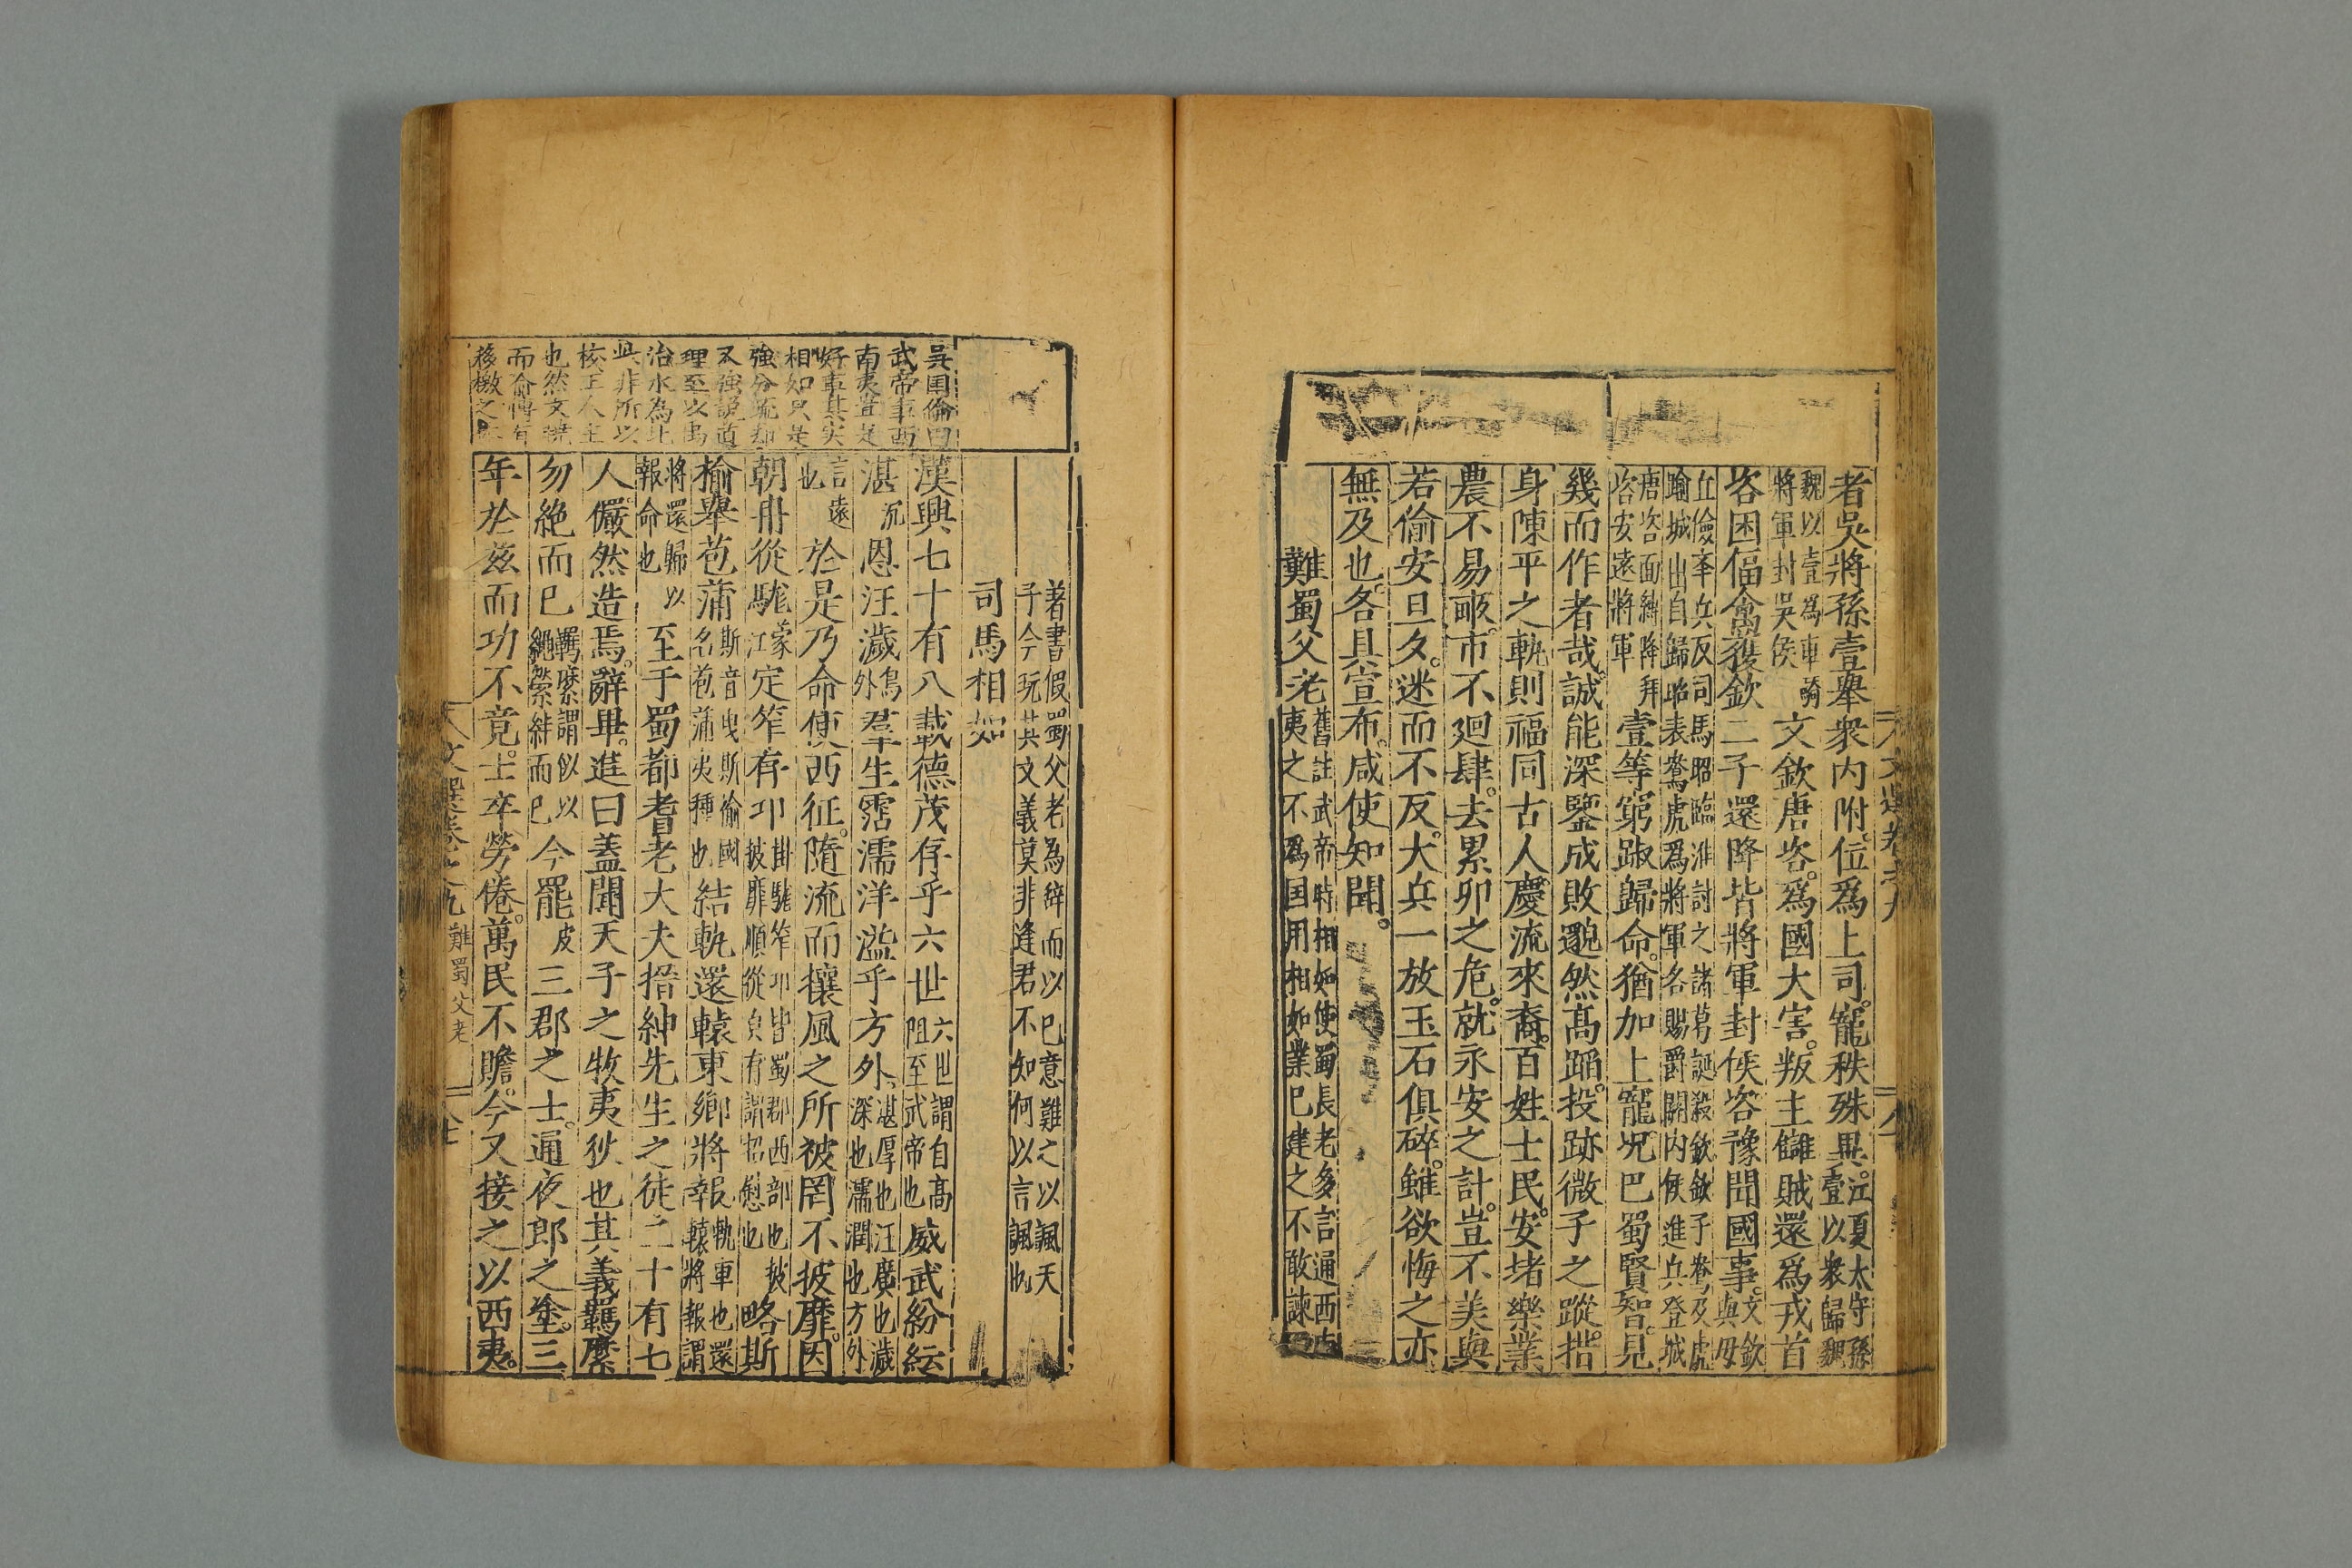 者吳將孫壹舉衆內附。位爲上司。寵秩殊異。江夏太守孫
壹以衆歸魏
魏以壹爲車騎
將軍封吳侯
文欽唐咨。爲國大害。叛主讎賊還爲戎首
咨困偪禽獲。欽二子還降皆將軍封侯咨豫聞國事。文欽
與毋
丘儉舉兵反司馬昭臨淮討之諸葛誕殺欽欽子鴦及虎
踰城出自歸昭表鴦虎爲將軍各賜爵關內侯進兵登城
唐咨面縛降拜
咨安遠將軍
壹等窮踧歸命。猶加上寵。况巴蜀賢智。見
幾而作者哉。誠能深鑒成敗邈然高蹈。投跡微子之蹤。措
身陳平之軌則福同古人。慶流來裔。百姓士民。安堵樂業
農不易畝。市不廻肆。去累卵之危。就永安之計。豈不美與
若偷安旦夕。迷而不反。大兵一放玉石俱碎。雖欲悔之亦
無及也。各具宣布。咸使知聞。
難蜀父老
舊註武帝時相如使蜀長老多言通西南
夷之不爲国用相如業已建之不敢諫
著書假蜀父老為辭而以己意難之以諷天
子今玩其文義莫非逢君不知何以言諷也
司馬相如
漢興七十有八載德茂存乎六世
六世謂自高
阻至武帝也
威武紛紜
湛
沉
恩汪濊
外
羣生霑濡洋溢乎方外。
湛厚也汪廣也濊
深也濡潤也方外
言遠
也
於是乃命使西征。隨流而攘風之所被罔不披靡。因
朝冉從駹
蒙
江
定筰存卭
冉駹筰卭皆蜀郡西部也披
披靡順從皃有謂招慰也
略斯
榆舉苞蒲
斯音曳斯偷國
名苞蒲夷種也
結軌還轅東鄉將報
軌車也還
轅將報謂
將還歸以
報命也
至于蜀都耆老大夫搢紳先生之徒二十有七
人。儼然造焉。辭畢。進曰蓋聞天子之牧夷狄也其義羈縻
勿絶而已
羈縻謂似以
繩縈絆而已
今罷
皮
三郡之士。通夜郎之塗。三
年於茲而功不竟。士卒勞倦。萬民不贍。今又接之以西夷。
吳囯倫曰
武帝事西
南夷豈是
好事其实
相如只是
強分疏却
又強説道
理至以禹
治水為比
此非所以
核正人主
也然文詭
移檄之
文選卷之九 難蜀父老